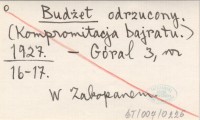 Budżet odrzucony.
(Kompromitacja bajratu.)
1927. – Góral 3, nr
16-17.
W Zakopanem.
67/009/0226